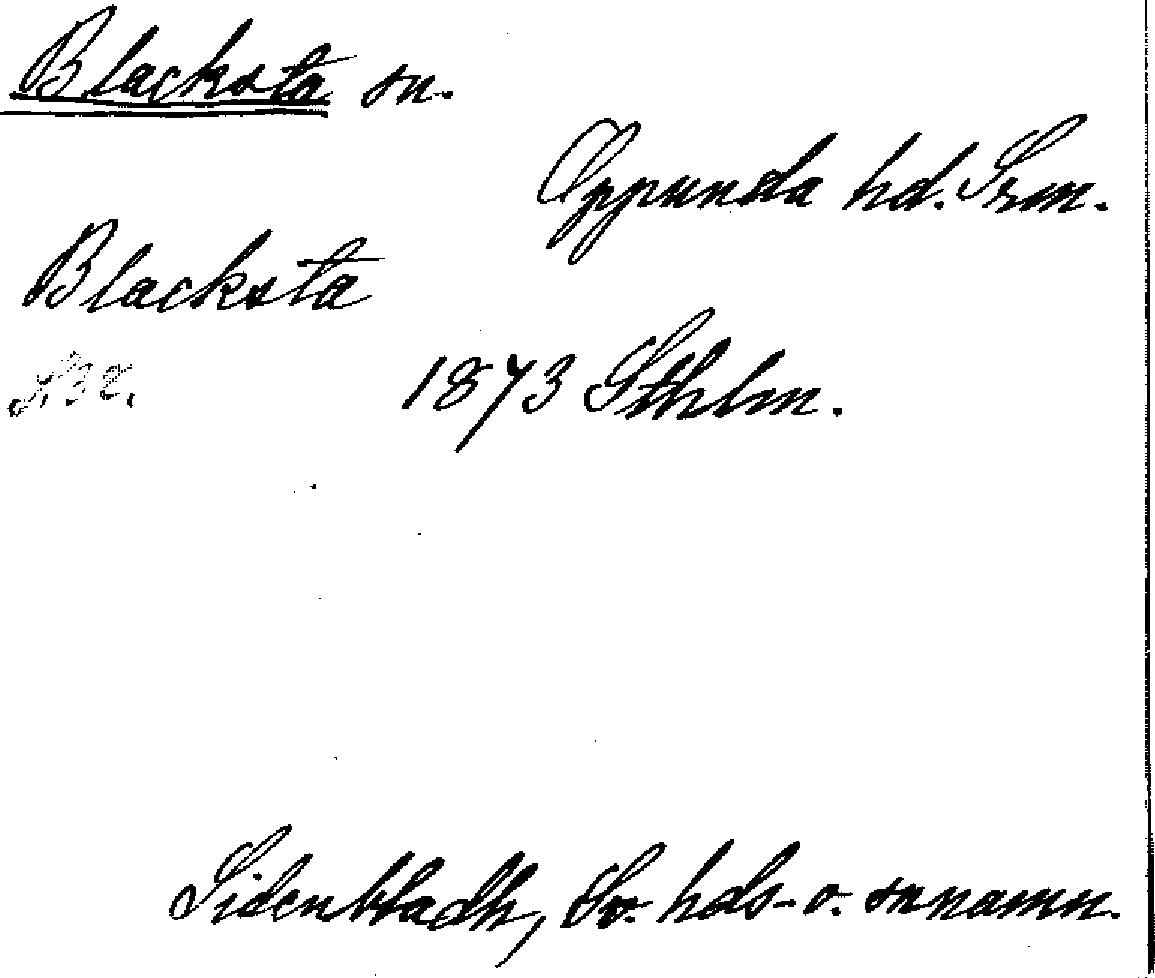 Blacksta sn.
Oppunda hd. Srm.
Blacksta
s. 32.
1873 Sthlm.
Sidenbladh, Sv. hds- o. snnamn.